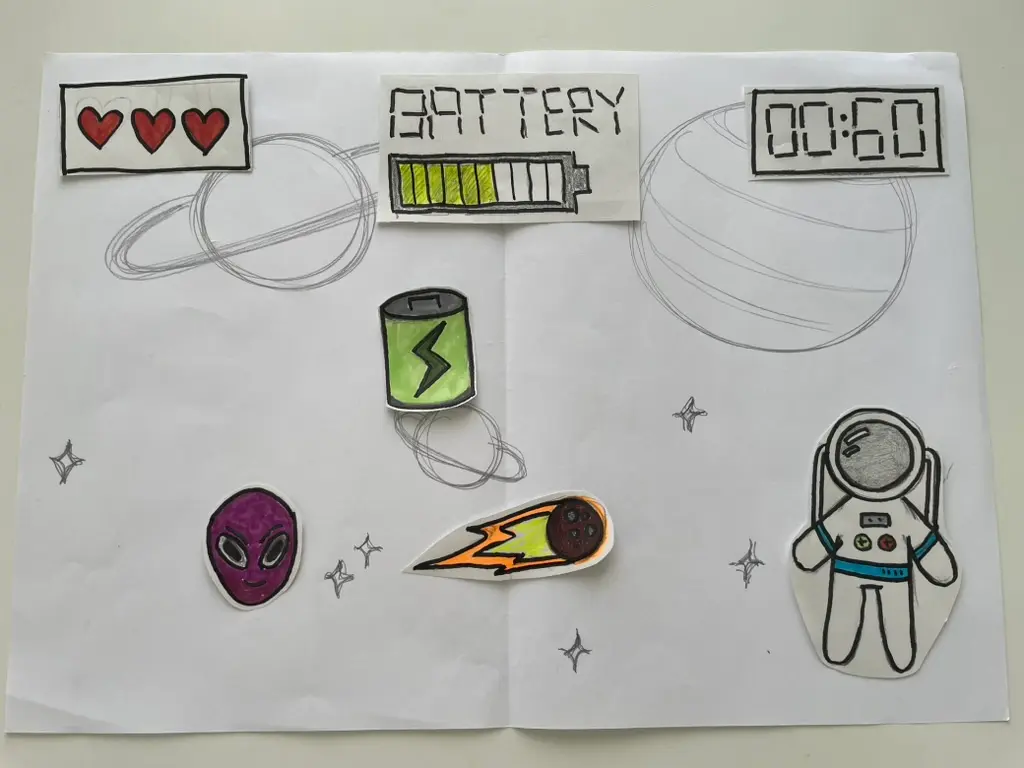 BATTERY
00:60